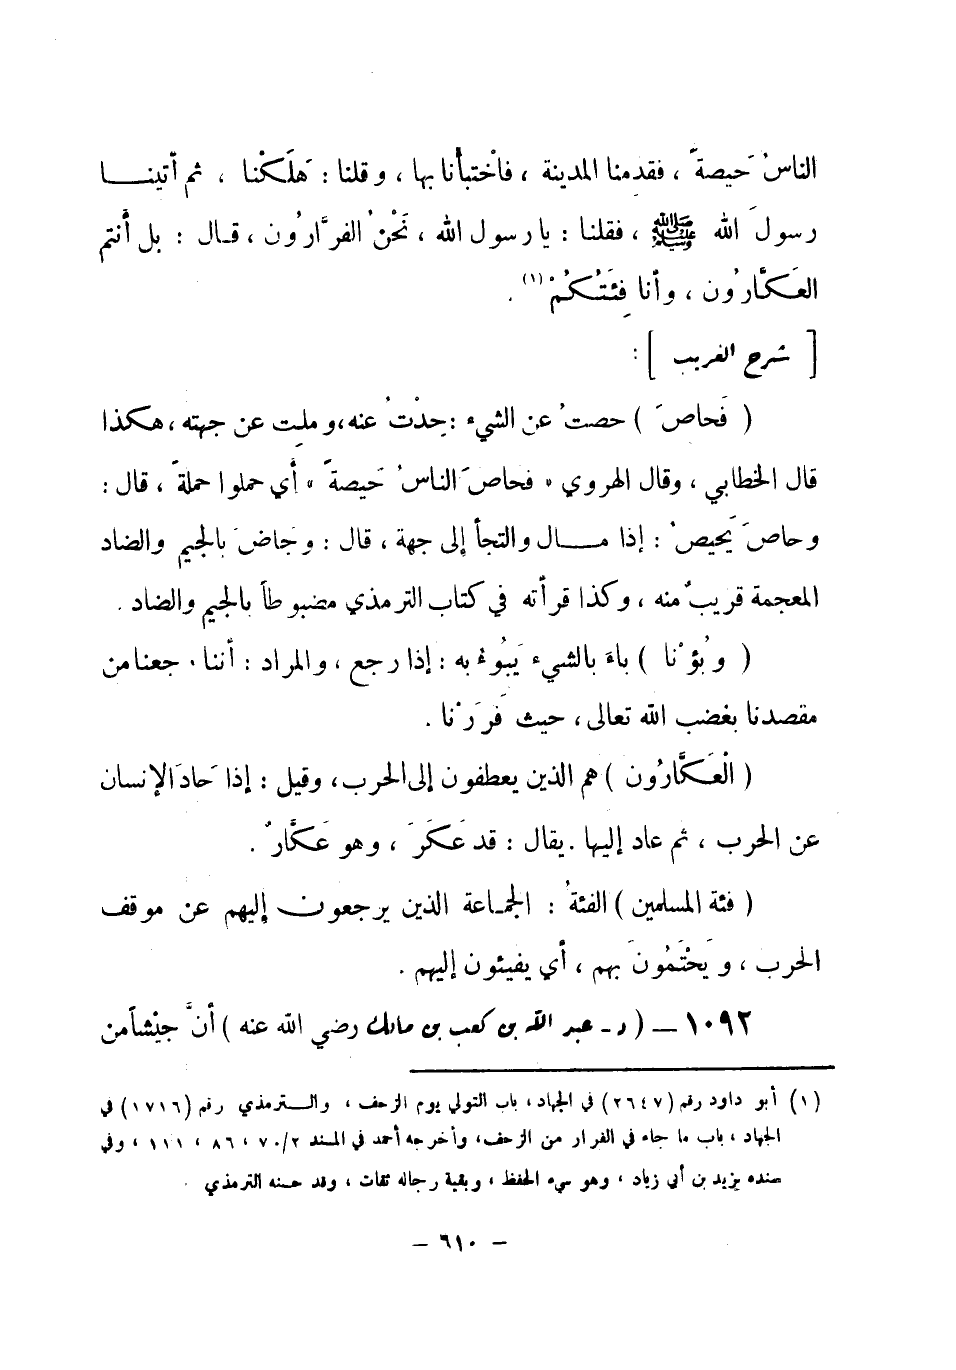 الناسُ حَيصةً ، فقدمنا المدينة ، فاخْتبأنا بها ، وقلنا : هَلَكْنا ، ثم أتينـــا
رسولَ الله ﷺ ، فقلنا : يا رسول الله ، نَحْنُ الفرَّارُون ، قـال : بل أنتم
العَكَّارُون ، وأنا فِئَتُكُمْ (١) .
[ شرح الغريب ] :
( فَحاصَ ) حصتُ عن الشيء : حِدْتُ عنه، وملت عن جهته ، هكذا
قال الخطابي ، وقال الهروي « فحاصَ الناسُ حَيصةً » أي حملوا حملةً ، قال :
وحاصَ يَحيصُ : إذا مـــال والتجأ إلى جهة ، قال : وجَاضَ بالجيم والضاد
المعجمة قريبٌ منه ، وكذا قرأته في كتاب الترمذي مضبوطاً بالجيم والضاد .
( وبُؤْنا ) باءَ بالشيء يَبُوءُ به : إذا رجع ، والمراد : أننا رجعنا من
مقصدنا بغضب الله تعالى ، حيث فَرَرْنا .
( الْعَكَّارُون ) هم الذين يعطفون إلى الحرب ، وقيل : إذا حَادَ الإنسان
عن الحرب ، ثم عاد إليها . يقال : قد عَكَرَ ، وهو عَكَّارٌ .
( فئة المسلمين ) الفئةُ : الجمـاعة الذين يرجعون إليهم عن موقف
الحرب ، ويَحْتَمُونَ بهم ، أي يفيئون إليهم .
١٠٩٢ — ( د - عبد الله بن كعب بن مالك رضي الله عنه ) أنَّ جَيْشاً من
(١) أبو داود رقم (٢٦٤٧) في الجهاد ، باب التولي يوم الزحف ، والـــترمذي رقم (١٧١٦) في
الجهاد ، باب ما جاء في الفرار من الزحف ، وأخرجه أحمد في المسند ٧٠/٢ ، ٨٦ ، ١١١ ، وفي
سنده يزيد بن أبي زياد ، وهو سيء الحفظ ، وبقية رجاله ثقات ، وقد حسنه الترمذي .
— ٦١٠ —